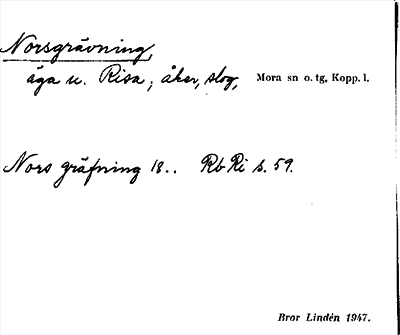 Norsgrävning,
äga u. Risa; åker, slog, Mora sn o. tg, Kopp. l.
Nors gräfning 18.. Rb Ri s. 59.
Bror Lindén 1947.